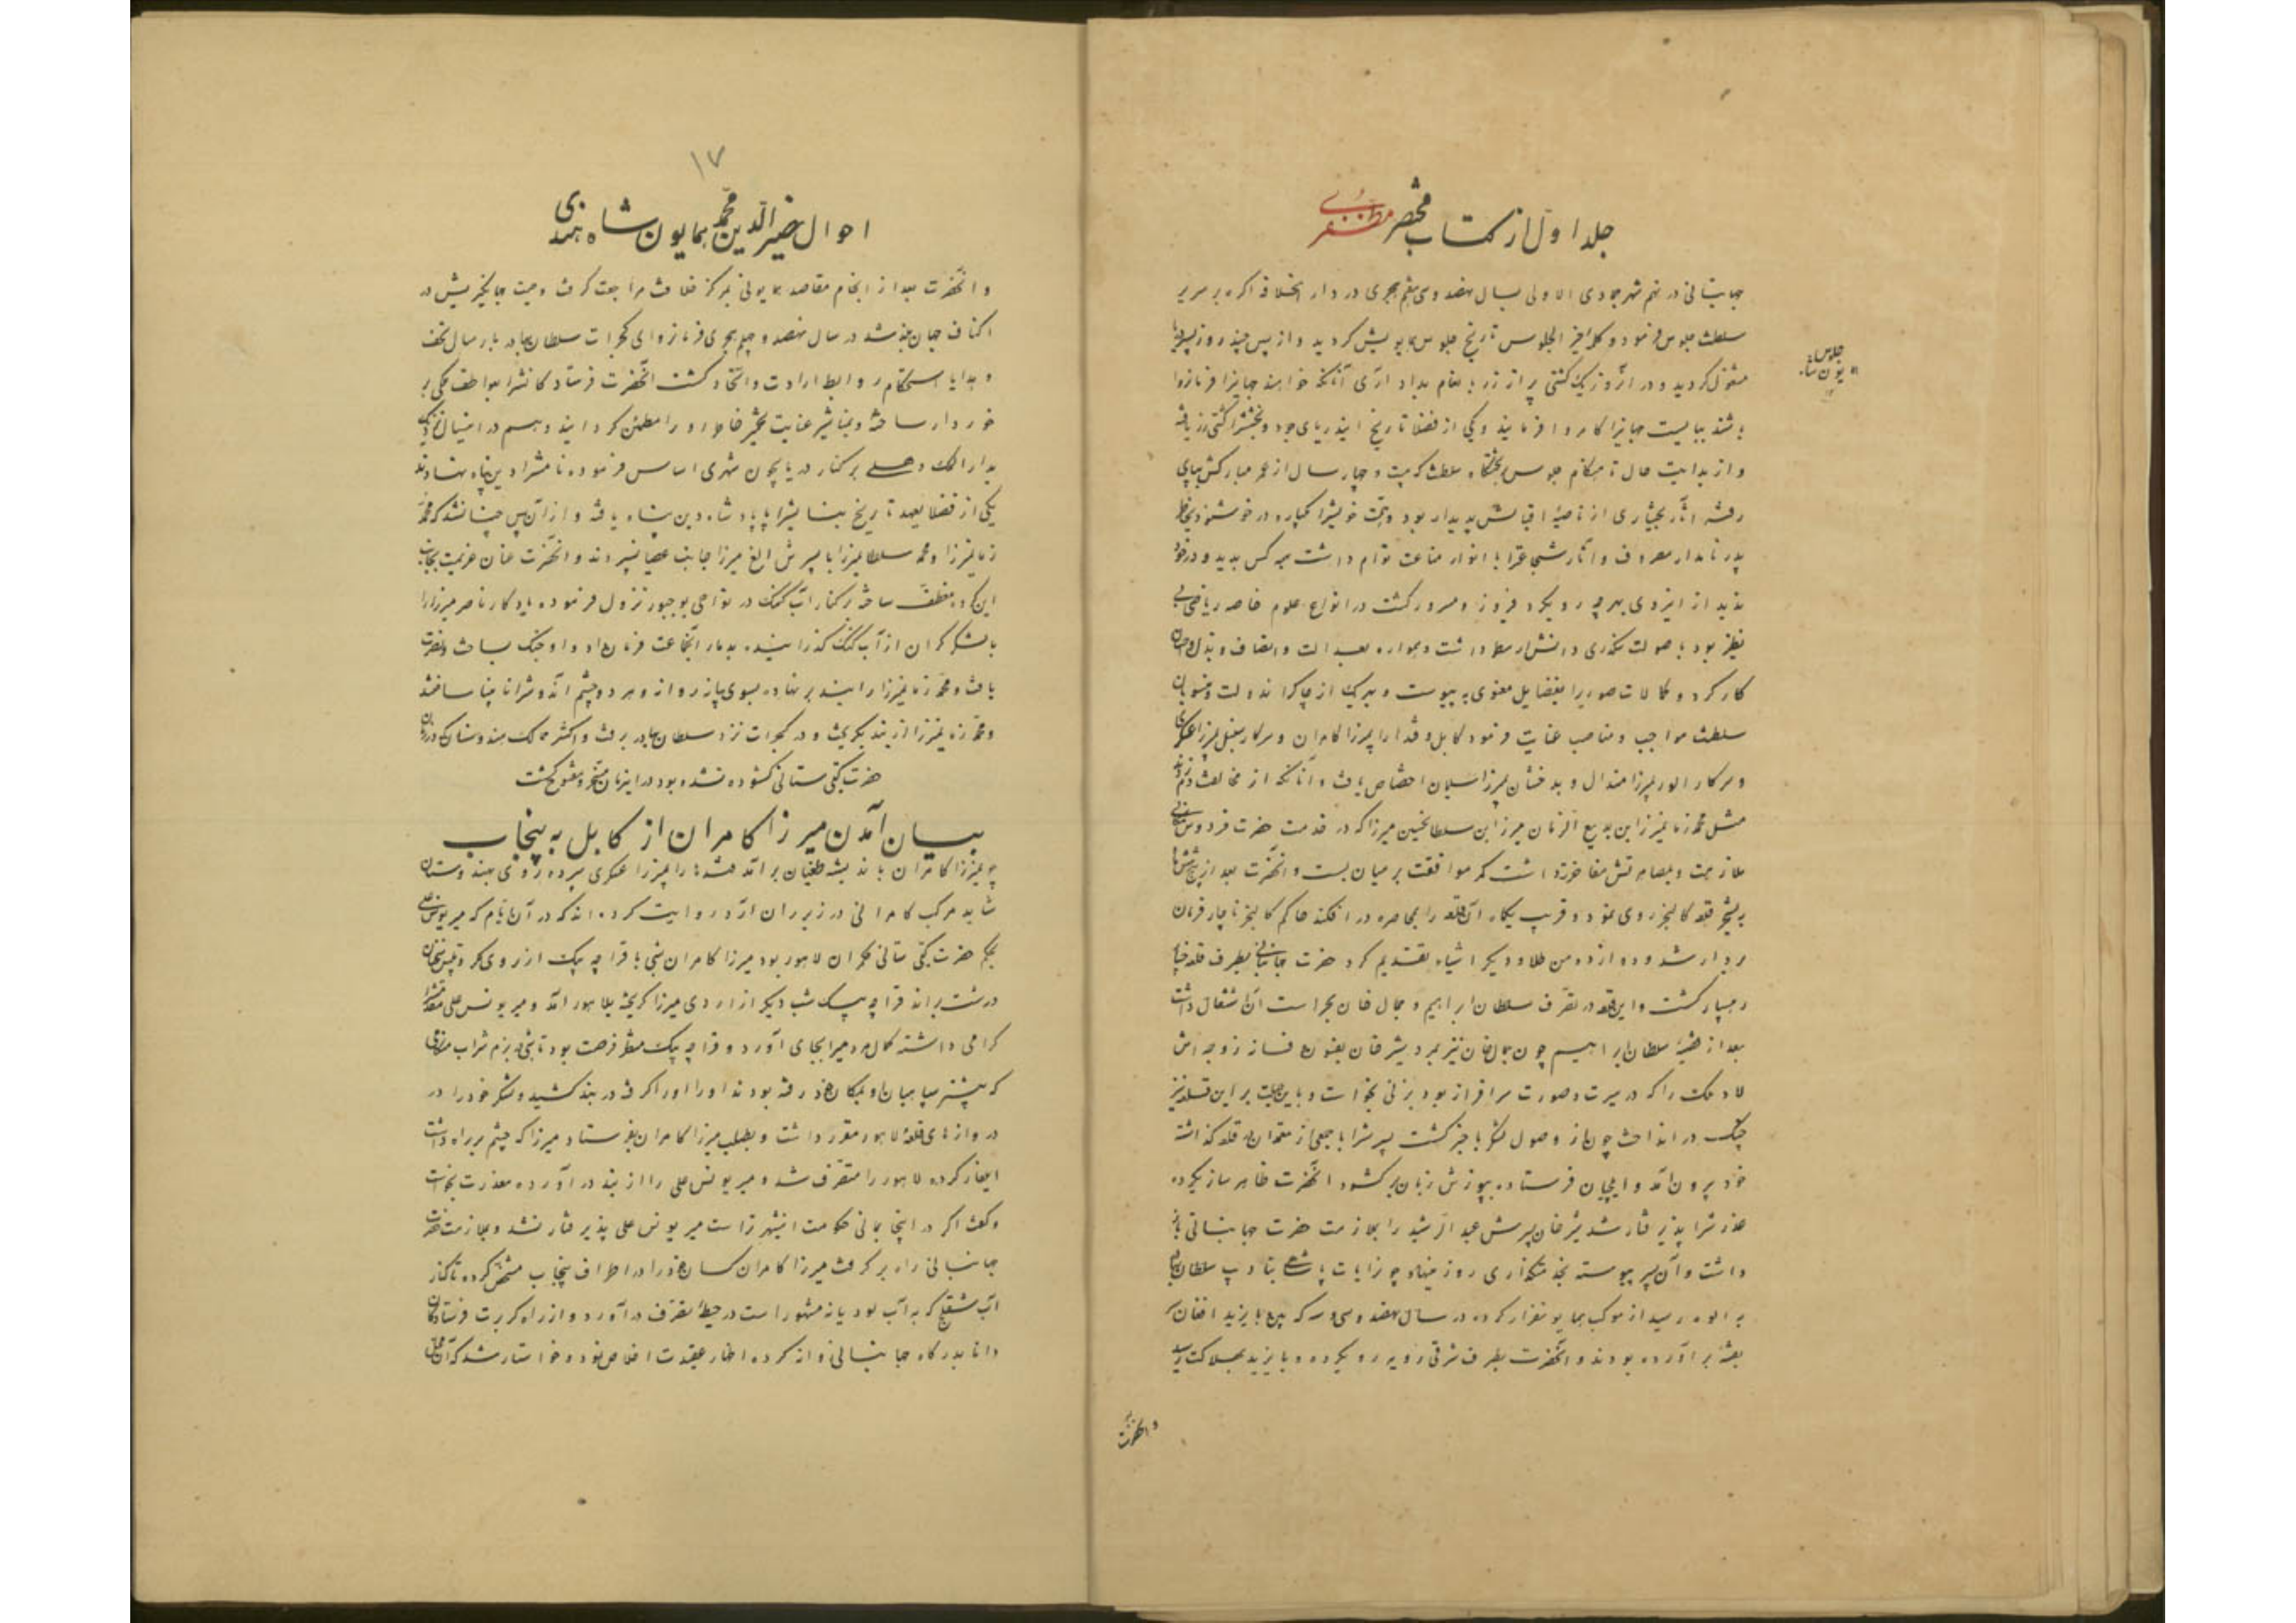 جلد اول از کتاب مختصر مظفری
جهانبانی در نهم شهر جمادی الاولی بسال نهصد و سی هفتم هجری در دار الخلافه اکره بر سریر
سلطنت جلوس فرمود و کلمه خیر الجلوس تاریخ جلوس همایونیش کردید و از پس چند روز بسیر دریا
مشغول کردید و در آنروز یک کشتی پر از زر بانعام بداد آری آنانکه خواهند جهانرا فرمانروا
باشند ببایست جهانیرا کامروا فرمایند و یکی از فضلا تاریخ این دریای جود و بخشش را کشتی زر یافته
و از بدایت حال تا هنکام جلوس بتختکاه سلطنت که بیست و چهار سال از عمر مبارکش بپای
رفته آثار بختیاری از ناصیه اقبالش پدیدار بود و همت خویشرا یکباره در خوشنودی خاطر
پدر نامدار مصروف و آثار شجاعترا با انوار مناعت توام داشت بهر کس بدید و در خور
بدید از ایزدی بهر چه رو یکرد فیروز و مسرور کشت در انواع علوم خاصه ریاضی بی
نظیر بود با صولت سکندری دانش ارسطو داشت و همواره بعدالت و انصاف و بذل و احسان
کار کرد و کمالات صوریرا بفضایل معنوی به پیوست و بهر یک از چاکران دولت و منسوبان
سلطنت مواجب و مناصب عنایت فرمود کابل و قندهار را بمیرزا کامران و سرکار سنبل بمیرزا عسکری
و سرکار الور بمیرزا هندال و بدخشان بمیرزا سلیمان اختصاص یافت و آنانکه از مخالفت دم زدند
مثل محمد زمان میرزا ابن بدیع الزمان میرزا ابن سلطانحسین میرزا که در خدمت حضرت فردوس مکانی
ملازمت و بمصاهرتش مفاخرت داشت کمر موافقت بر میان بست و آنحضرت بعد از پنج شش ماه
به تسخیر قلعه کالنجر روی نمود و قریب یکماه آن قلعه را بمحاصره در افکند حاکم کالنجر ناچار فرمان
بردار شد و دوازده من طلا و دیکر اشیاء تقدیم کرد حضرت جهانبانی بطرف قلعه چناده
رهسپار کشت و این قلعه در تصرف سلطان ابراهیم و جمال خان بحراست آن اشتغال داشت
بعد از قضیه سلطان ابراهیم چون جمال خان نیز بمرد شیر خان بفنون و فسانه زوجه اش
لاد ملک را که در سیرت و صورت سرافراز بود بزنی بخواست و باین حیلت بر این قلعه نیز
چنک در انداخت چون از وصول لشکر با خبر کشت پسرش را با جمعی از معتمدان در قلعه کذاشته
خود بیرون آمد و ایلچیان فرستاده بپوزش زبان بر کشود آنحضرت ظاهر ساز یکرده
عذر شرا پذیرفتار شد شیر خان پسرش عبد الرشید را بملازمت حضرت جهانبانی باز
داشت و آن پسر پیوسته بخدمتکذاری روز مینهاد چو رایات پادشاهی بتادیب سلطان بهادر
به الوه رسید از موکب همایونی فرار کرده در سال نهصد و سی و سه که ببن بایزید افغان
بفتنه بر آورده بودند و آنحضرت بطرف شرقی رویه رو یکرده و بایزید بهلاکت رسید
جلوس
همایون شاه
و آنحضرت
۱۷
احوال نصیر الدین محمد همایون شاه هندی
و آنحضرت بعد از انجام مقاصد همایونی بمرکز خلافت مراجعت کرفت وصیت جهانکیریش در
اکناف جهان بلند شد در سال نهصد و چهلم هجری فرمانروای کجرات سلطان بهادر بارسال تحف
و هدایا استحکام روابط ارادت و اتحاد کشت آنحضرت فرستادکانشرا بعواطف ملکی بر
خوردار ساخت و بمناشیر عنایت تخمیر خاطر او را مطمئن کردانید و هم در اینسال نزدیک
بدار الملک دهلی بر کنار دریا بچون شهری اساس فرموده نامشرا دین پناه نهادند
یکی از فضلا بعهد تاریخ بنایشرا پادشاه دین پناه یافت و از آن پس چنان شد که محمد
زمان میرزا و محمد سلطان میرزا با پسرش الغ میرزا جانب عصیان سپردند و آنحضرت عنان عزیمت بجانب
این کروه منعطف ساخت بر کنار آب کنک در نواحی بوجبور نزول فرموده یادکار ناصر میرزا را
با لشکر کران از آب کنک کذرانیده بدمار آنجماعت فرمان داد و او جنک بساخت و نصرت
یافت و محمد زمان میرزا را بند بر نهاده بسوی بیانه روانه و هر دو چشم آندو شرا نابینا ساختند
و محمد زمان میرزا از بند بکریخت و در کجرات نزد سلطان بهادر برفت و اکثر ممالک هندوستان که در زمان
حضرت کیتی ستانی کشوده نشده بود در اینزمان مسخر و مفتوح کشت
بیان آمدن میرزا کامران از کابل به پنجاب
چو میرزا کامران باندیشه طغیان بر آمد قندهار را بمیرزا عسکری سپرده روی بهندوستان
شاید مرکب کامرانی در زیر ران آرد روایت کرده اند که در آن ایام که میر یونس علی
بحکم حضرت کیتی ستانی حکمران لاهور بود میرزا کامران شبی با قراچه بیک از روی مکر و تلبیس سخنان
درشت براند قراچه بیک شب دیکر از اردوی میرزا کریخته بلاهور آمد و میر یونس علی مقدمشرا
کرامی داشته کمال مردمیرا بجای آورد و قراچه بیک منتظر فرصت بود تا شبی در بزم شراب
که بیشتر سپاهیان او بمکان خود رفته بودند او را اورا کرفته در بند کشید و لشکر خود را در
دروازهای قلعه لاهور مقرر داشت و بطلب میرزا کامران بفرستاد میرزا که چشم بر راه داشت
ایلغار کرده لاهور را متصرف شد و میر یونس علی را از بند در آورده معذرت بخواست
و کفت اکر در اینجا بمانی حکومت اینشهر تراست میر یونس علی پذیرفتار نشد و بملازمت حضرت
جهانبانی راه بر کرفت میرزا کامران کسان خود را در اطراف پنجاب مشخص کرده تا کنار
آب ستلج که به آب لودیانه مشهور است در حیطه تصرف در آورد و از راه کربت فرستادکان
دانا بدرکاه جهانبانی روانه کرده اظهار عقیدت اخلاص نمود و خواستار شد که آن محال